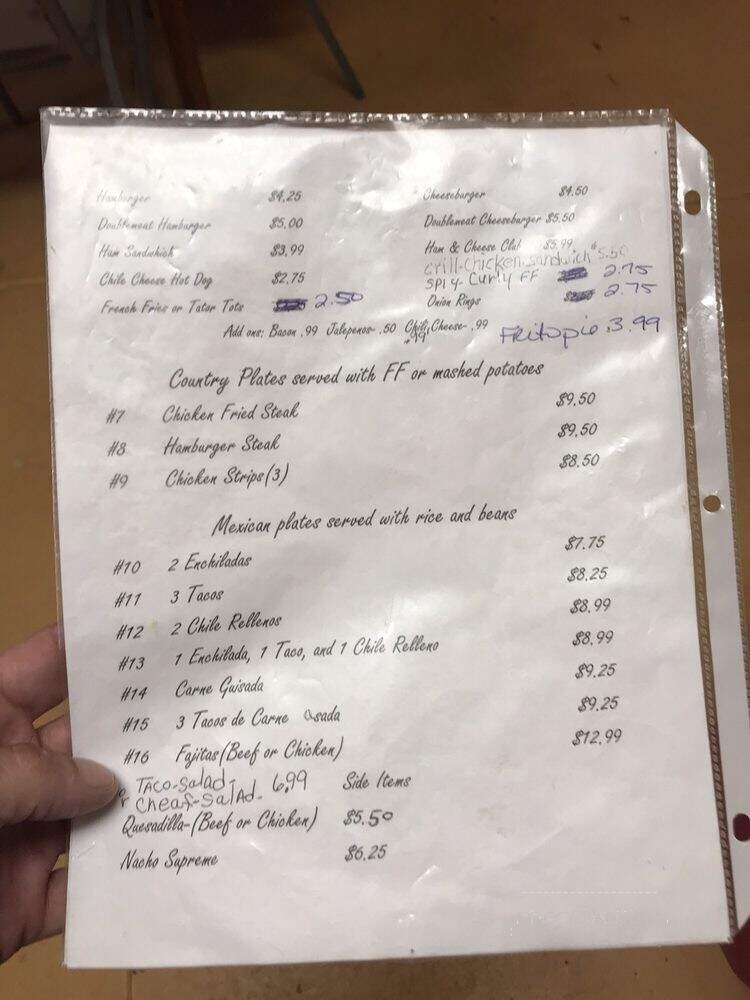 Hamburger $4.25 Cheeseburger $4.50
Doublemeat Hamburger $5.00 Doublemeat Cheeseburger $5.50
Ham Sandwhich $3.99 Ham & Cheese Club $5.99
Grill-Chicken-Sandwich $5.50
Chile Cheese Hot Dog $2.75 SPIy-Curly FF 2.75
French Fries or Tator Tots 2.50 Onion Rings 2.75
Add ons: Bacon .99 Jalepenos- .50 Chili, Cheese- .99 Fritopie 3.99
.99
Country Plates served with FF or mashed potatoes
#7 Chicken Fried Steak $9.50
#8 Hamburger Steak $9.50
#9 Chicken Strips(3) $8.50
Mexican plates served with rice and beans
#10 2 Enchiladas $7.75
#11 3 Tacos $8.25
#12 2 Chile Rellenos $8.99
#13 1 Enchilada, 1 Taco, and 1 Chile Relleno $8.99
#14 Carne Guisada $9.25
#15 3 Tacos de Carne asada $9.25
#16 Fajitas(Beef or Chicken) $12.99
Taco-Salad- 6.99 Side Items
Cheaf-Salad-
Quesadilla-(Beef or Chicken) $5.50
Nacho Supreme $6.25